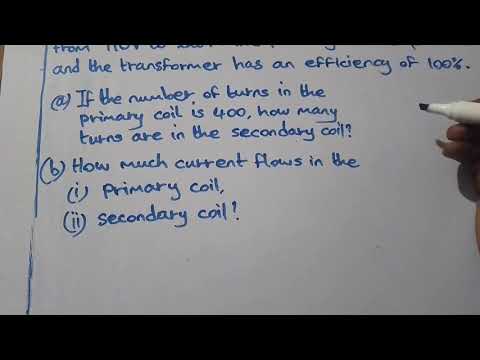 and the transformer has an efficiency of 100%.
(a) If the number of turns in the
primary coil is 400, how many
turns are in the secondary coil?
(b) How much current flows in the
(i) Primary coil,
(ii) Secondary coil?